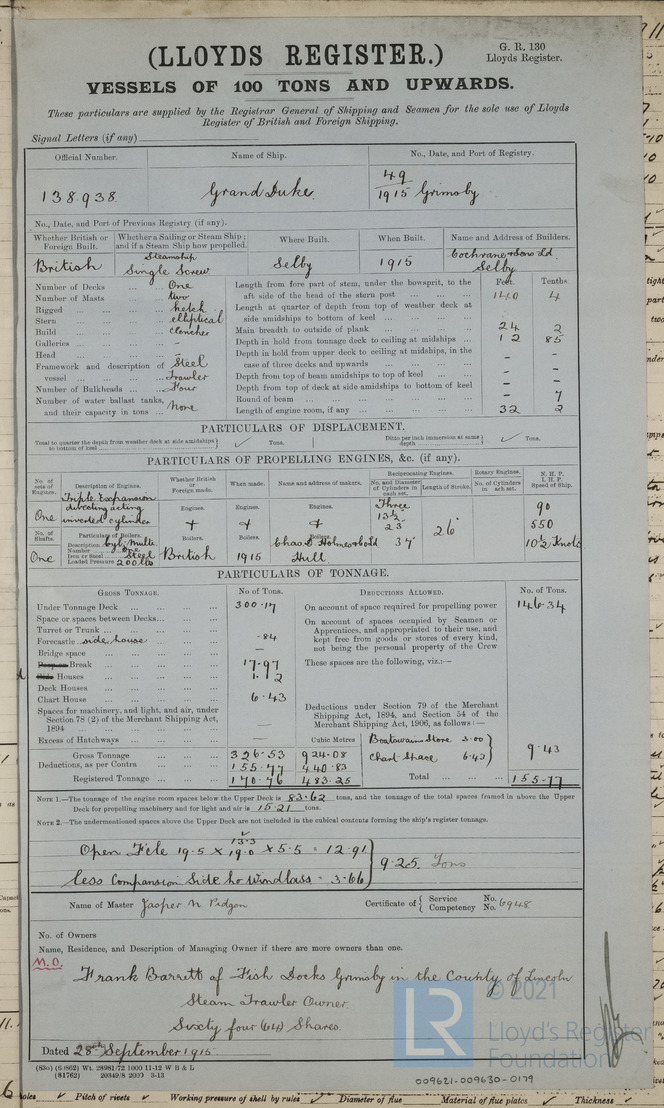 (LLOYDS REGISTER.)
G. R. 130
Lloyds Register.
VESSELS OF 100 TONS AND UPWARDS.
These particulars are supplied by the Registrar General of Shipping and Seamen for the sole use of Lloyds
Register of British and Foreign Shipping.
Signal Letters (if any)
Official Number. Name of Ship. No., Date, and Port of Registry.
138.938. Grand Duke. 49
1915 Grimsby
No., Date, and Port of Previous Registry (if any).
Whether British or Foreign Built. Whether a Sailing or Steam Ship; and if a Steam Ship how propelled. Where Built. When Built. Name and Address of Builders.
British Steamship Single Screw Selby 1915 Cochrane & Sons Ld Selby
Number of Decks One
Number of Masts two
Rigged ketch
Stern elliptical
Build clencher
Galleries -
Head -
Framework and description of vessel Steel Trawler
Number of Bulkheads Four
Number of water ballast tanks, and their capacity in tons none
Feet. Tenths.
Length from fore part of stem, under the bowsprit, to the
aft side of the head of the stern post 140 4
Length at quarter of depth from top of weather deck at
side amidships to bottom of keel
Main breadth to outside of plank 24 2
Depth in hold from tonnage deck to ceiling at midships 12 85
Depth in hold from upper deck to ceiling at midships, in the
case of three decks and upwards - -
Depth from top of beam amidships to top of keel - -
Depth from top of deck at side amidships to bottom of keel - -
Round of beam - 7
Length of engine room, if any 32 2
PARTICULARS OF DISPLACEMENT.
Total to quarter the depth from weather deck at side amidships to bottom of keel Tons. Ditto per inch immersion at same depth Tons.
PARTICULARS OF PROPELLING ENGINES, &c. (if any).
No. of sets of Engines. Description of Engines. Whether British or Foreign made. When made. Name and address of makers. Reciprocating Engines. Rotary Engines. N. H. P. I. H. P. Speed of Ship.
No. and Diameter of Cylinders in each set. Length of Stroke. No. of Cylinders in each set.
One Triple Expansion directing acting inverted cylinder Engines. Engines. Engines. Three 13½ 23 37 26" 90
550
10½ Knots
No. of Shafts. Particulars of Boilers. Boilers. Boilers. Boilers.
One Description Cyl. Multi
Number One
Iron or Steel Steel
Loaded Pressure 200 lbs
British 1915 Chas D Holmes & Co Ld Hull
PARTICULARS OF TONNAGE.
GROSS TONNAGE. No of Tons. DEDUCTIONS ALLOWED. No. of Tons.
Under Tonnage Deck 300.17
Space or spaces between Decks
Turret or Trunk
Forecastle side house .84
Bridge space —
Break 17.97
Houses 1.12
Deck Houses
Chart House 6.43
Spaces for machinery, and light, and air, under
Section 78 (2) of the Merchant Shipping Act,
1894 —
Excess of Hatchways —
On account of space required for propelling power 146.34
On account of spaces occupied by Seamen or
Apprentices, and appropriated to their use, and
kept free from goods or stores of every kind,
not being the personal property of the Crew
These spaces are the following, viz:—
Deductions under Section 79 of the Merchant
Shipping Act, 1894, and Section 54 of the
Merchant Shipping Act, 1906, as follows:—
Cubic Metres
Gross Tonnage 326.53 924.08
Deductions, as per Contra 155.77 440.83
Registered Tonnage 170.76 483.25
Boatswains Store 3.00
Chart Space 6.43
9.43
Total 155.77
NOTE 1.—The tonnage of the engine room spaces below the Upper Deck is 83.62 tons, and the tonnage of the total spaces framed in above the Upper
Deck for propelling machinery and for light and air is 15.21 tons.
NOTE 2.—The undermentioned spaces above the Upper Deck are not included in the cubical contents forming the ship's register tonnage.
13.3
Open F'cle 19.5 x 19.0 x 5.5 = 12.91
less Companion Side ho Windlass = 3.66
9.25 Tons
Name of Master Jasper N Pidgon Certificate of Service No.
Competency No. 6948
No. of Owners
Name, Residence, and Description of Managing Owner if there are more owners than one.
M.O.
Frank Barrett of Fish Docks Grimsby in the County of Lincoln
Steam Trawler Owner.
Sixty four (64) Shares.
Dated 28th September 1915
(83o) (6/862) Wt. 28981/72 1000 11-12 W B & L
(81762) 20349/8 2000 3-13
LR
© 2021
Lloyd's Register
Foundation
009621-009630-0179
Pitch of rivets Working pressure of shell by rules Diameter of flue Material of flue plates Thickness